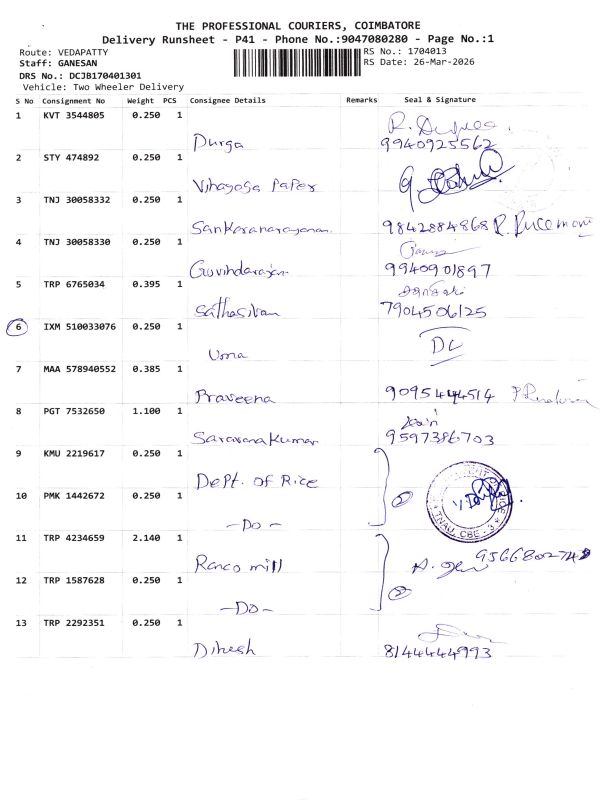 THE PROFESSIONAL COURIERS, COIMBATORE
Delivery Runsheet - P41 - Phone No.:9047080280 - Page No.:1
Route: VEDAPATTY
RS No.: 1704013
Staff: GANESAN
RS Date: 26-Mar-2026
DRS No.: DCJB170401301
Vehicle: Two Wheeler Delivery
S No Consignment No Weight PCS Consignee Details Remarks Seal & Signature
1 KVT 3544805 0.250 1
Durga 9940925562
2 STY 474892 0.250 1
Vinayaga Paper
3 TNJ 30058332 0.250 1
Sankaranarayanan 9842884868
4 TNJ 30058330 0.250 1
Govindarajan 9940901897
5 TRP 6765034 0.395 1
Sathasivan 7904506125
6 IXM 510033076 0.250 1 DL
Uma
7 MAA 578940552 0.385 1
Praveena 9095444514
8 PGT 7532650 1.100 1
Saravanakumar 9597386703
9 KMU 2219617 0.250 1
Dept. of Rice
10 PMK 1442672 0.250 1 2
-Do- TNAU, CBE - 3
11 TRP 4234659 2.140 1
Ranco mill
12 TRP 1587628 0.250 1 2
-Do-
13 TRP 2292351 0.250 1
Dinesh 8144444993